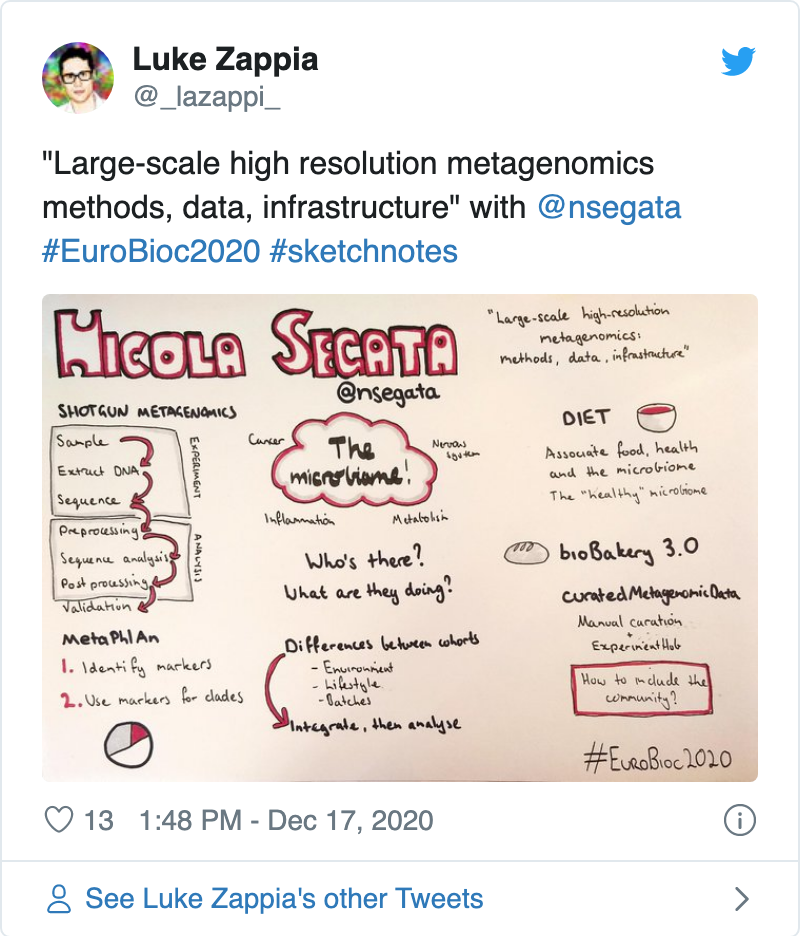 Luke Zappia
@_lazappi_
"Large-scale high resolution metagenomics
methods, data, infrastructure" with @nsegata
#EuroBioc2020 #sketchnotes
NICOLA SEGATA
@nsegata
"Large-scale high-resolution
metagenomics:
methods, data, infrastructure"
SHOTGUN METAGENOMICS
Sample
Extract DNA
Sequence
EXPERIMENT
Preprocessing
Sequence analysis
Post processing
ANALYSIS
Validation
MetaPhlAn
1. Identify markers
2. Use markers for clades
Cancer
The
microbiome!
Nervous
system
Inflammation
Metabolism
Who's there?
What are they doing?
Differences between cohorts
- Environment
- Lifestyle
- Batches
Integrate, then analyse
DIET
Associate food, health
and the microbiome
The "healthy" microbiome
bioBakery 3.0
curatedMetagenomicData
Manual curation
+
ExperimentHub
How to include the
community?
#EuroBioc2020
13 1:48 PM - Dec 17, 2020
See Luke Zappia's other Tweets